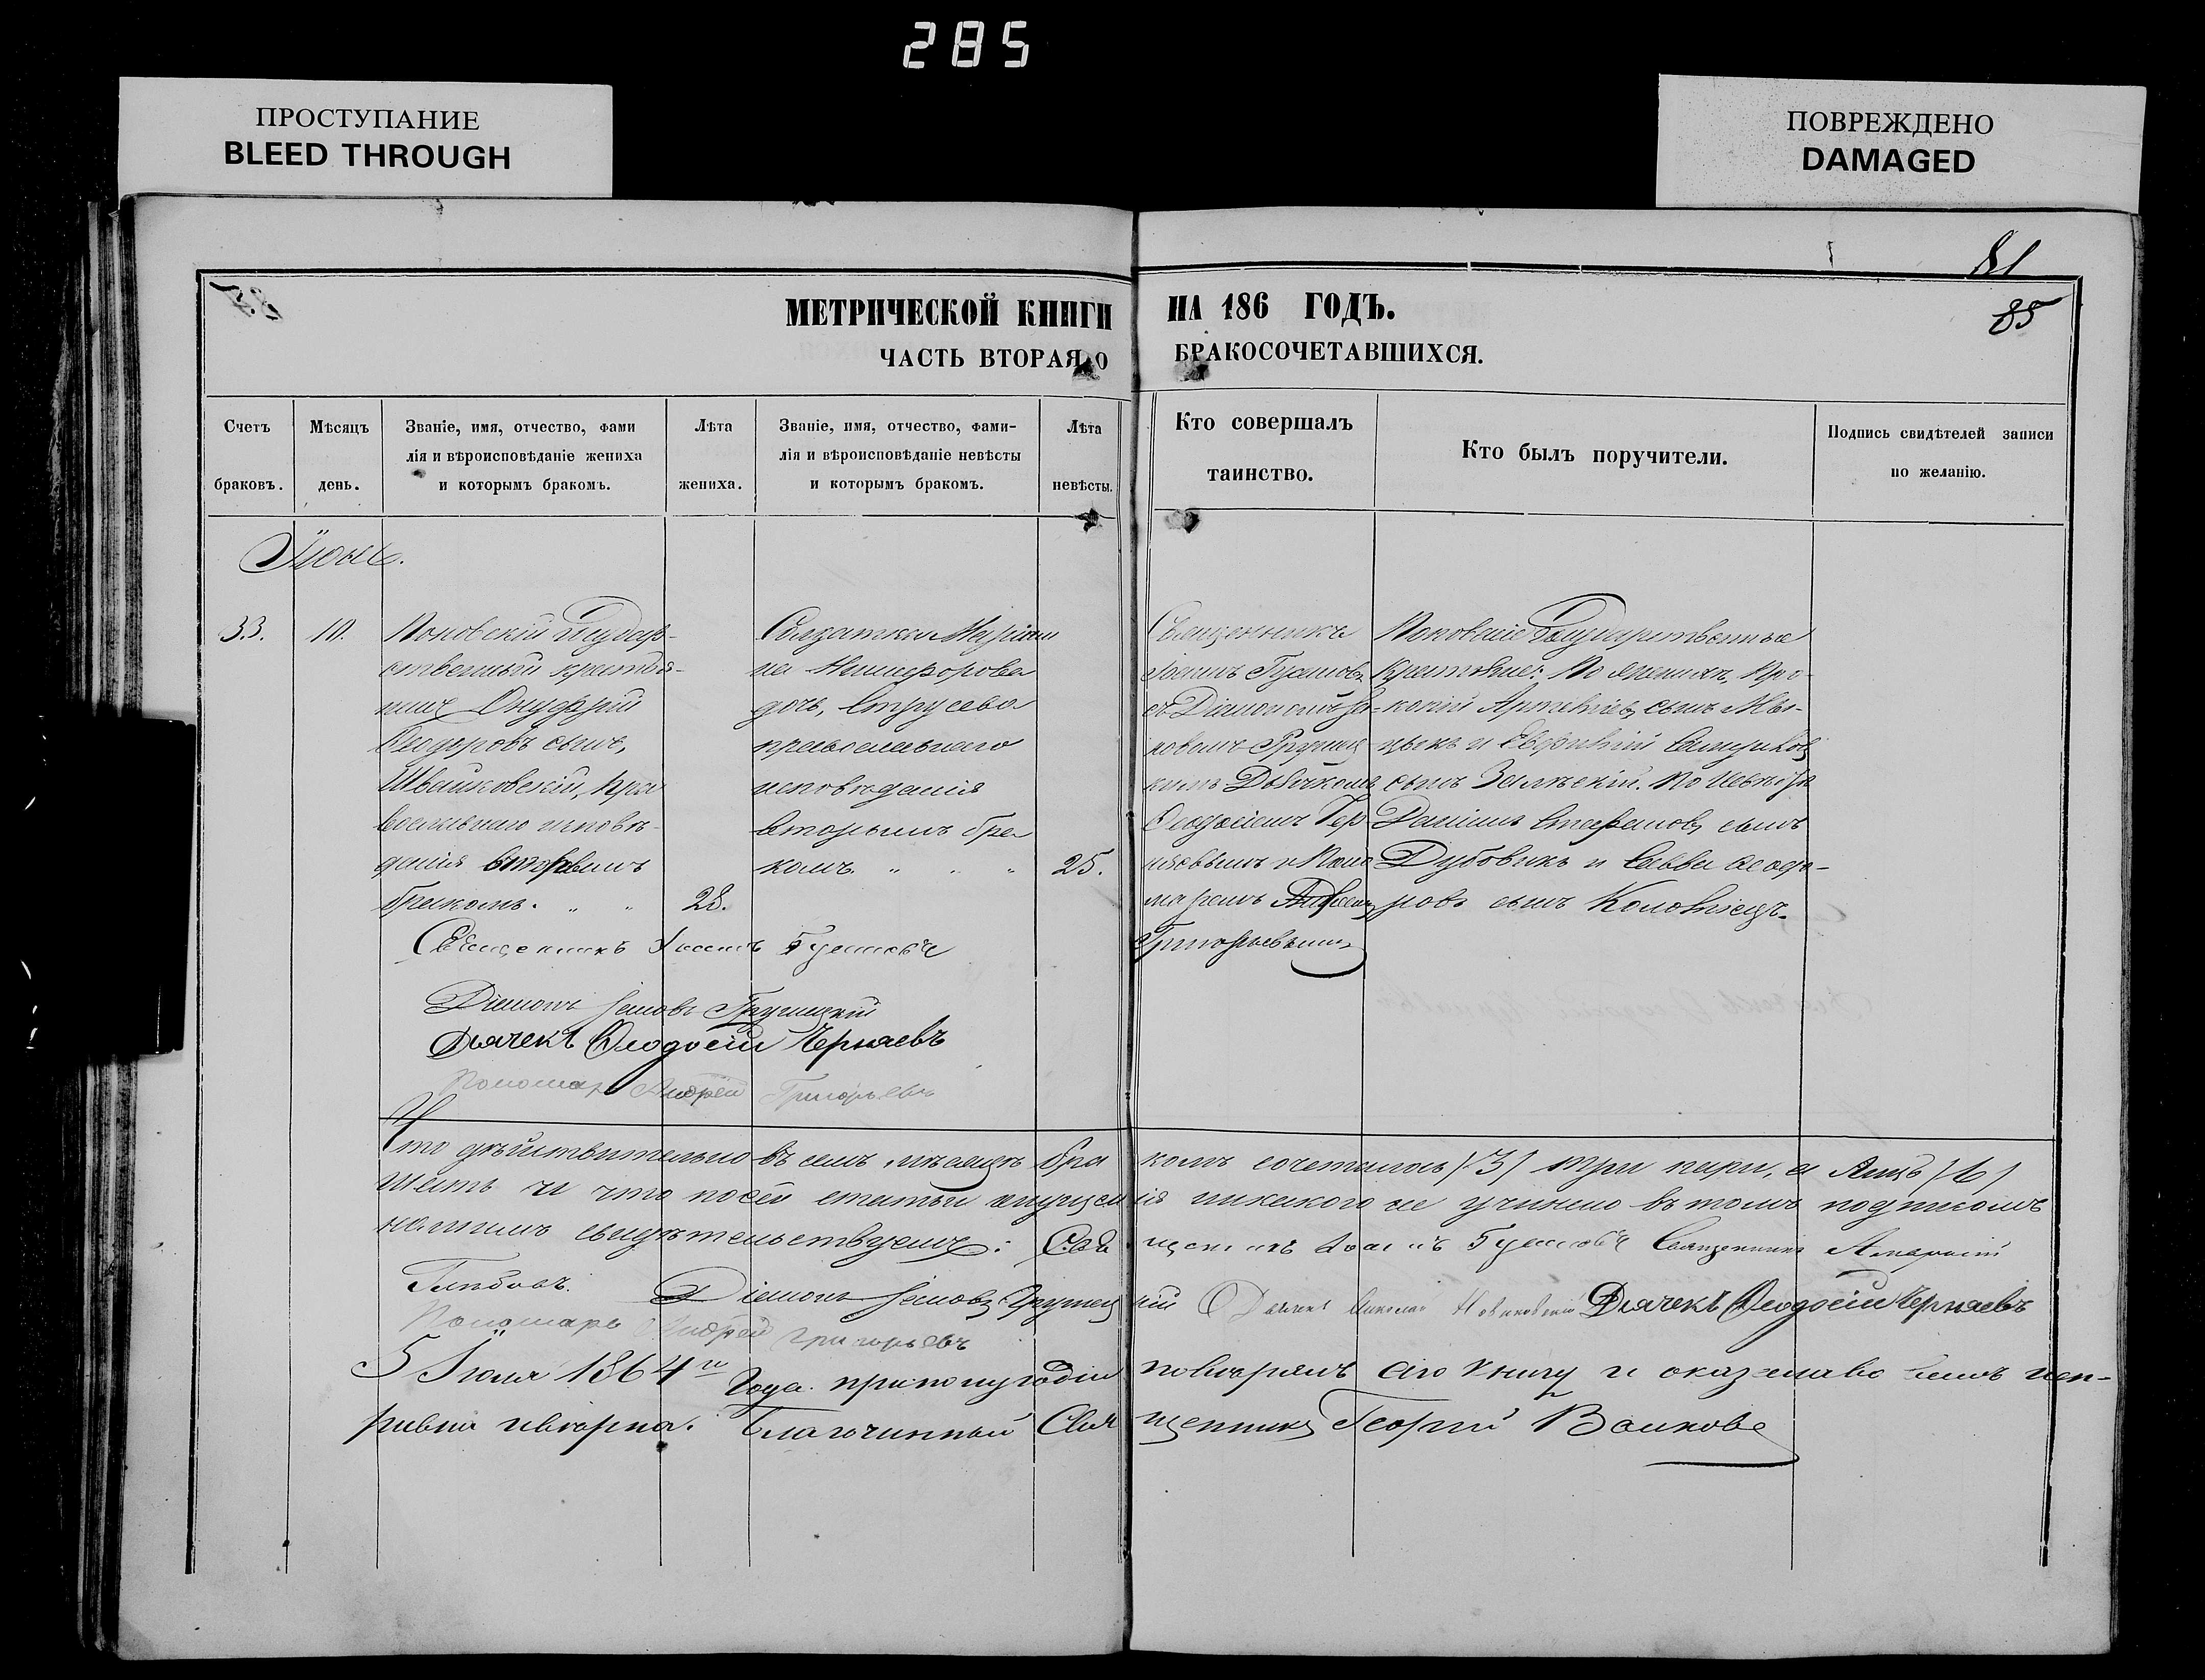 285
ПРОСТУПАНИЕ
BLEED THROUGH
ПОВРЕЖДЕНО
DAMAGED
81
85
МЕТРИЧЕСКОЙ КНИГИ НА 186 ГОДЪ.
ЧАСТЬ ВТОРАЯ, О БРАКОСОЧЕТАВШИХСЯ.
Счетъ браковъ.
Мѣсяцъ день.
Званіе, имя, отчество, фами
лія и вѣроисповѣданіе жениха
и которымъ бракомъ.
Лѣта жениха.
Званіе, имя, отчество, фами-
лія и вѣроисповѣданіе невѣсты
и которымъ бракомъ.
Лѣта невѣсты.
Кто совершалъ
таинство.
Кто былъ поручители.
Подпись свидѣтелей записи
по желанію.
Іюнь.
33.
10.
Поповскій Государ-
ственный крестья-
нинъ Онуфрій
Ѳеодоровъ сынъ,
Швайковскій, пра
вославнаго исповѣ-
данія вторымъ
бракомъ. „ „
28.
Солдатка Маріан
на Никифорова
дочь,
православнаго
исповѣданія
вторымъ бра
комъ. „ „ „
25.
Священникъ
Іоаннъ
съ Діакономъ Іа-
ковомъ Груниц
кимъ Дьячкомъ
Ѳеодосіемъ Чер
няевымъ и Поно
маремъ Андреемъ
Григорьевымъ
Поповскіе Государственные
Крестьяне: По женихѣ, Про-
копій сынъ
и Евфимій
сынъ По невѣстѣ
Даніилъ Стефановъ сынъ
Дубовикъ и Савва Ѳеодо-
ровъ сынъ Коломіецъ.
Священникъ Іоаннъ
Діаконъ Іаковъ Груницкій
Дьячекъ Ѳеодосій Черняевъ
Пономарь Андрей Григорьевъ
Что дѣйствительно въ семъ мѣсяцѣ бра комъ сочеталось /3/ три пары, а лицъ /6/
шесть и что по сей статьи опущен ія никакого не учинено въ томъ подписомъ
нашимъ свидѣтельствуемъ: Свя щенникъ Іоаннъ Священникъ
Глѣбовъ. Діаконъ Іаковъ Груниц кій Дьячекъ Николай Новиковскій Дьячекъ Ѳеодосій Черняевъ
Пономарь Андрей Григорьевъ
5 Іюля 1864го года. при полугодіи повѣрялъ сію книгу и оказалась
вѣрна. Благочинный Свя щенникъ Георгій Волковъ